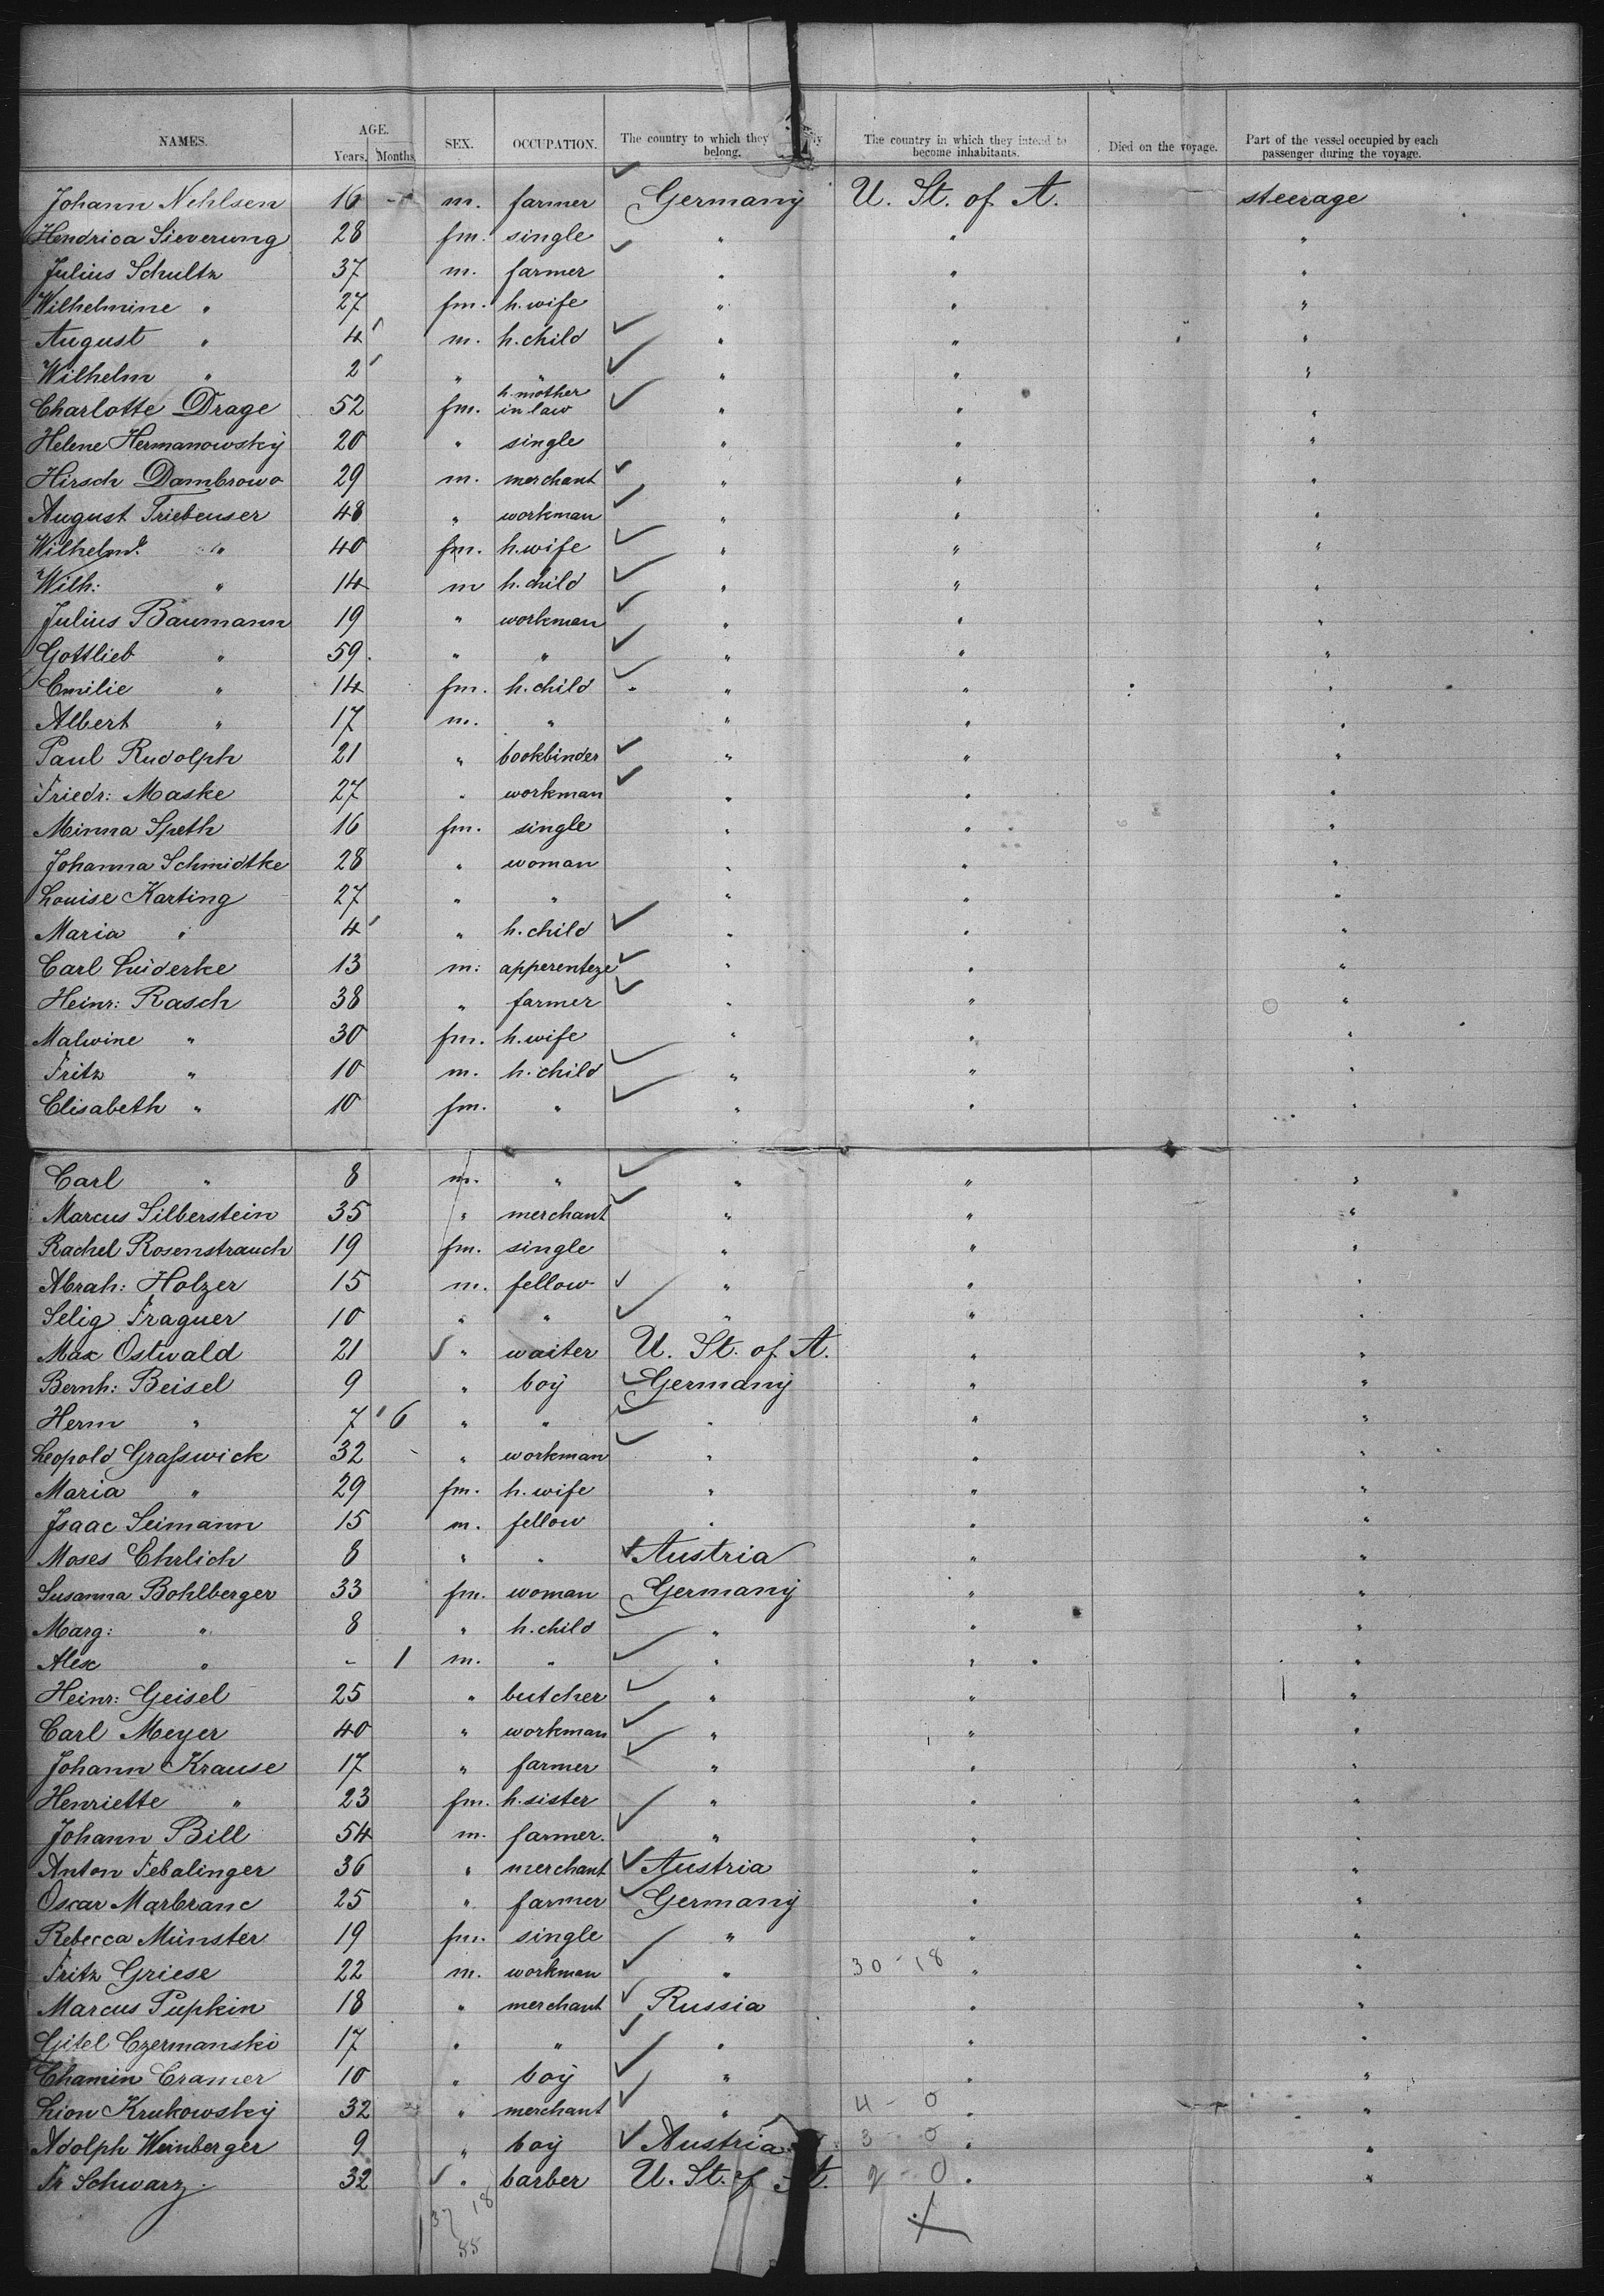 NAMES. AGE. Years. Months. SEX. OCCUPATION. The country to which they belong. The country in which they intend to become inhabitants. Died on the voyage. Part of the vessel occupied by each passenger during the voyage.
Johann Nehlsen 16 m. farmer Germany U. St. of A. steerage
Hendrica Sieverung 28 fm. single " " "
Julius Schultz 37 m. farmer " " "
Wilhelmine " 27 fm. h. wife " " "
August " 4 m. h. child " " "
Wilhelm " 2 " " " " "
Charlotte Drage 52 fm. h. mother in law " " "
Helene Hermanowsky 20 " single " " "
Hirsch Dambrowo 29 m. merchant " " "
August Triebeuser 48 " workman " " "
Wilhelme " 40 fm. h. wife " " "
Wilh: " 14 m h. child " " "
Julius Baumann 19 " workman " " "
Gottlieb " 59. " " " " "
Emilie " 14 fm. h. child " " "
Albert " 17 m. " " " "
Paul Rudolph 21 " bookbinder " " "
Friedr: Maske 27 " workman " " "
Minna Speth 16 fm. single " " "
Johanna Schmidtke 28 " woman " " "
Louise Karting 27 " " " " "
Maria " 4 " h. child " " "
Carl Luiderke 13 m: apperenteze " " "
Heinr: Rasch 38 " farmer " " "
Malwine " 30 fm. h. wife " " "
Fritz " 10 m. h. child " " "
Elisabeth " 10 fm. " " " "
Carl " 8 m. " " " "
Marcus Silberstein 35 " merchant " " "
Rachel Rosenstrauch 19 fm. single " " "
Abrah: Holzer 15 m. fellow " " "
Selig Fraguer 10 " " " " "
Max Ostwald 21 " waiter U. St. of A. " "
Bernh: Beisel 9 " boy Germany " "
Herm " 7 6 " " " " "
Leopold Graſswick 32 " workman " " "
Maria " 29 fm. h. wife " " "
Isaac Seimann 15 m. fellow " " "
Moses Ehrlich 8 " " Austria " "
Susanna Bohlberger 33 fm. woman Germany " "
Marg: " 8 " h. child " " "
Alex " - 1 m. " " " "
Heinr: Geisel 25 " butcher " " "
Carl Meyer 40 " workman " " "
Johann Krause 17 " farmer " " "
Henriette " 23 fm. h. sister " " "
Johann Bill 54 m. farmer. " " "
Anton Febalinger 36 " merchant Austria " "
Oscar Marbranc 25 " farmer Germany " "
Rebecca Münster 19 fm. single " " "
Fritz Griese 22 m. workman " 30 - 18 " "
Marcus Pupkin 18 " merchant Russia " "
Gitel Czermanski 17 " " " " "
Chamin Cramer 10 " boy " " "
Lion Krukowsky 32 " merchant " 4 - 0 " "
Adolph Weinberger 9 " boy Austria 3 - 0 " "
Fr Schwarz. 32 " barber U. St. of A. 2 - 0 " "
37 18
55